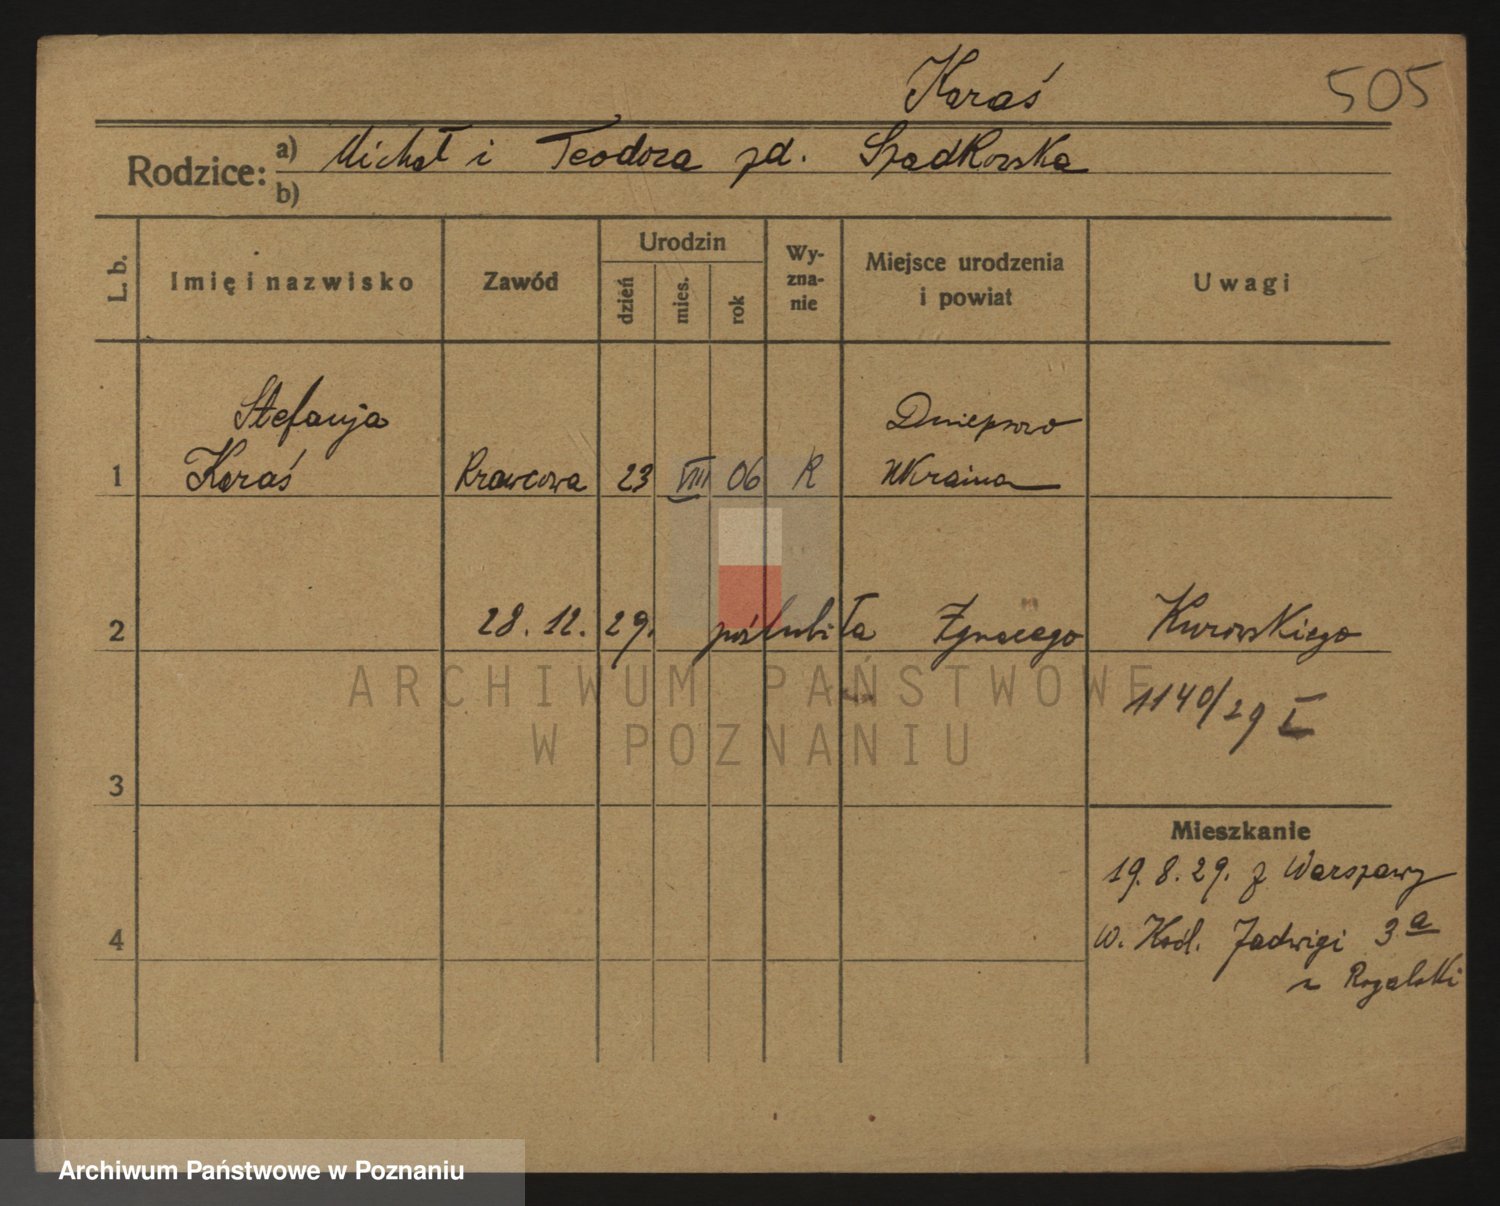 Karaś
505
Rodzice: a) Michał i Teodora zd. Szadkowska
b)
L. b.
Imię i nazwisko
Zawód
Urodzin
dzień
mies.
rok
Wy-
zna-
nie
Miejsce urodzenia
i powiat
Uwagi
Stefanja Dnieprowo
1 Karaś Krawcowa 23 VIII 06 R Ukraina
2 28. 12. 29. poślubiła Ignacego Kurowskiego
1140/29 I
3
Mieszkanie
19. 8. 29. z Warszawy
4 w. Król. Jadwigi 3a
u Rogalski
ARCHIWUM PAŃSTWOWE
W POZNANIU
Archiwum Państwowe w Poznaniu